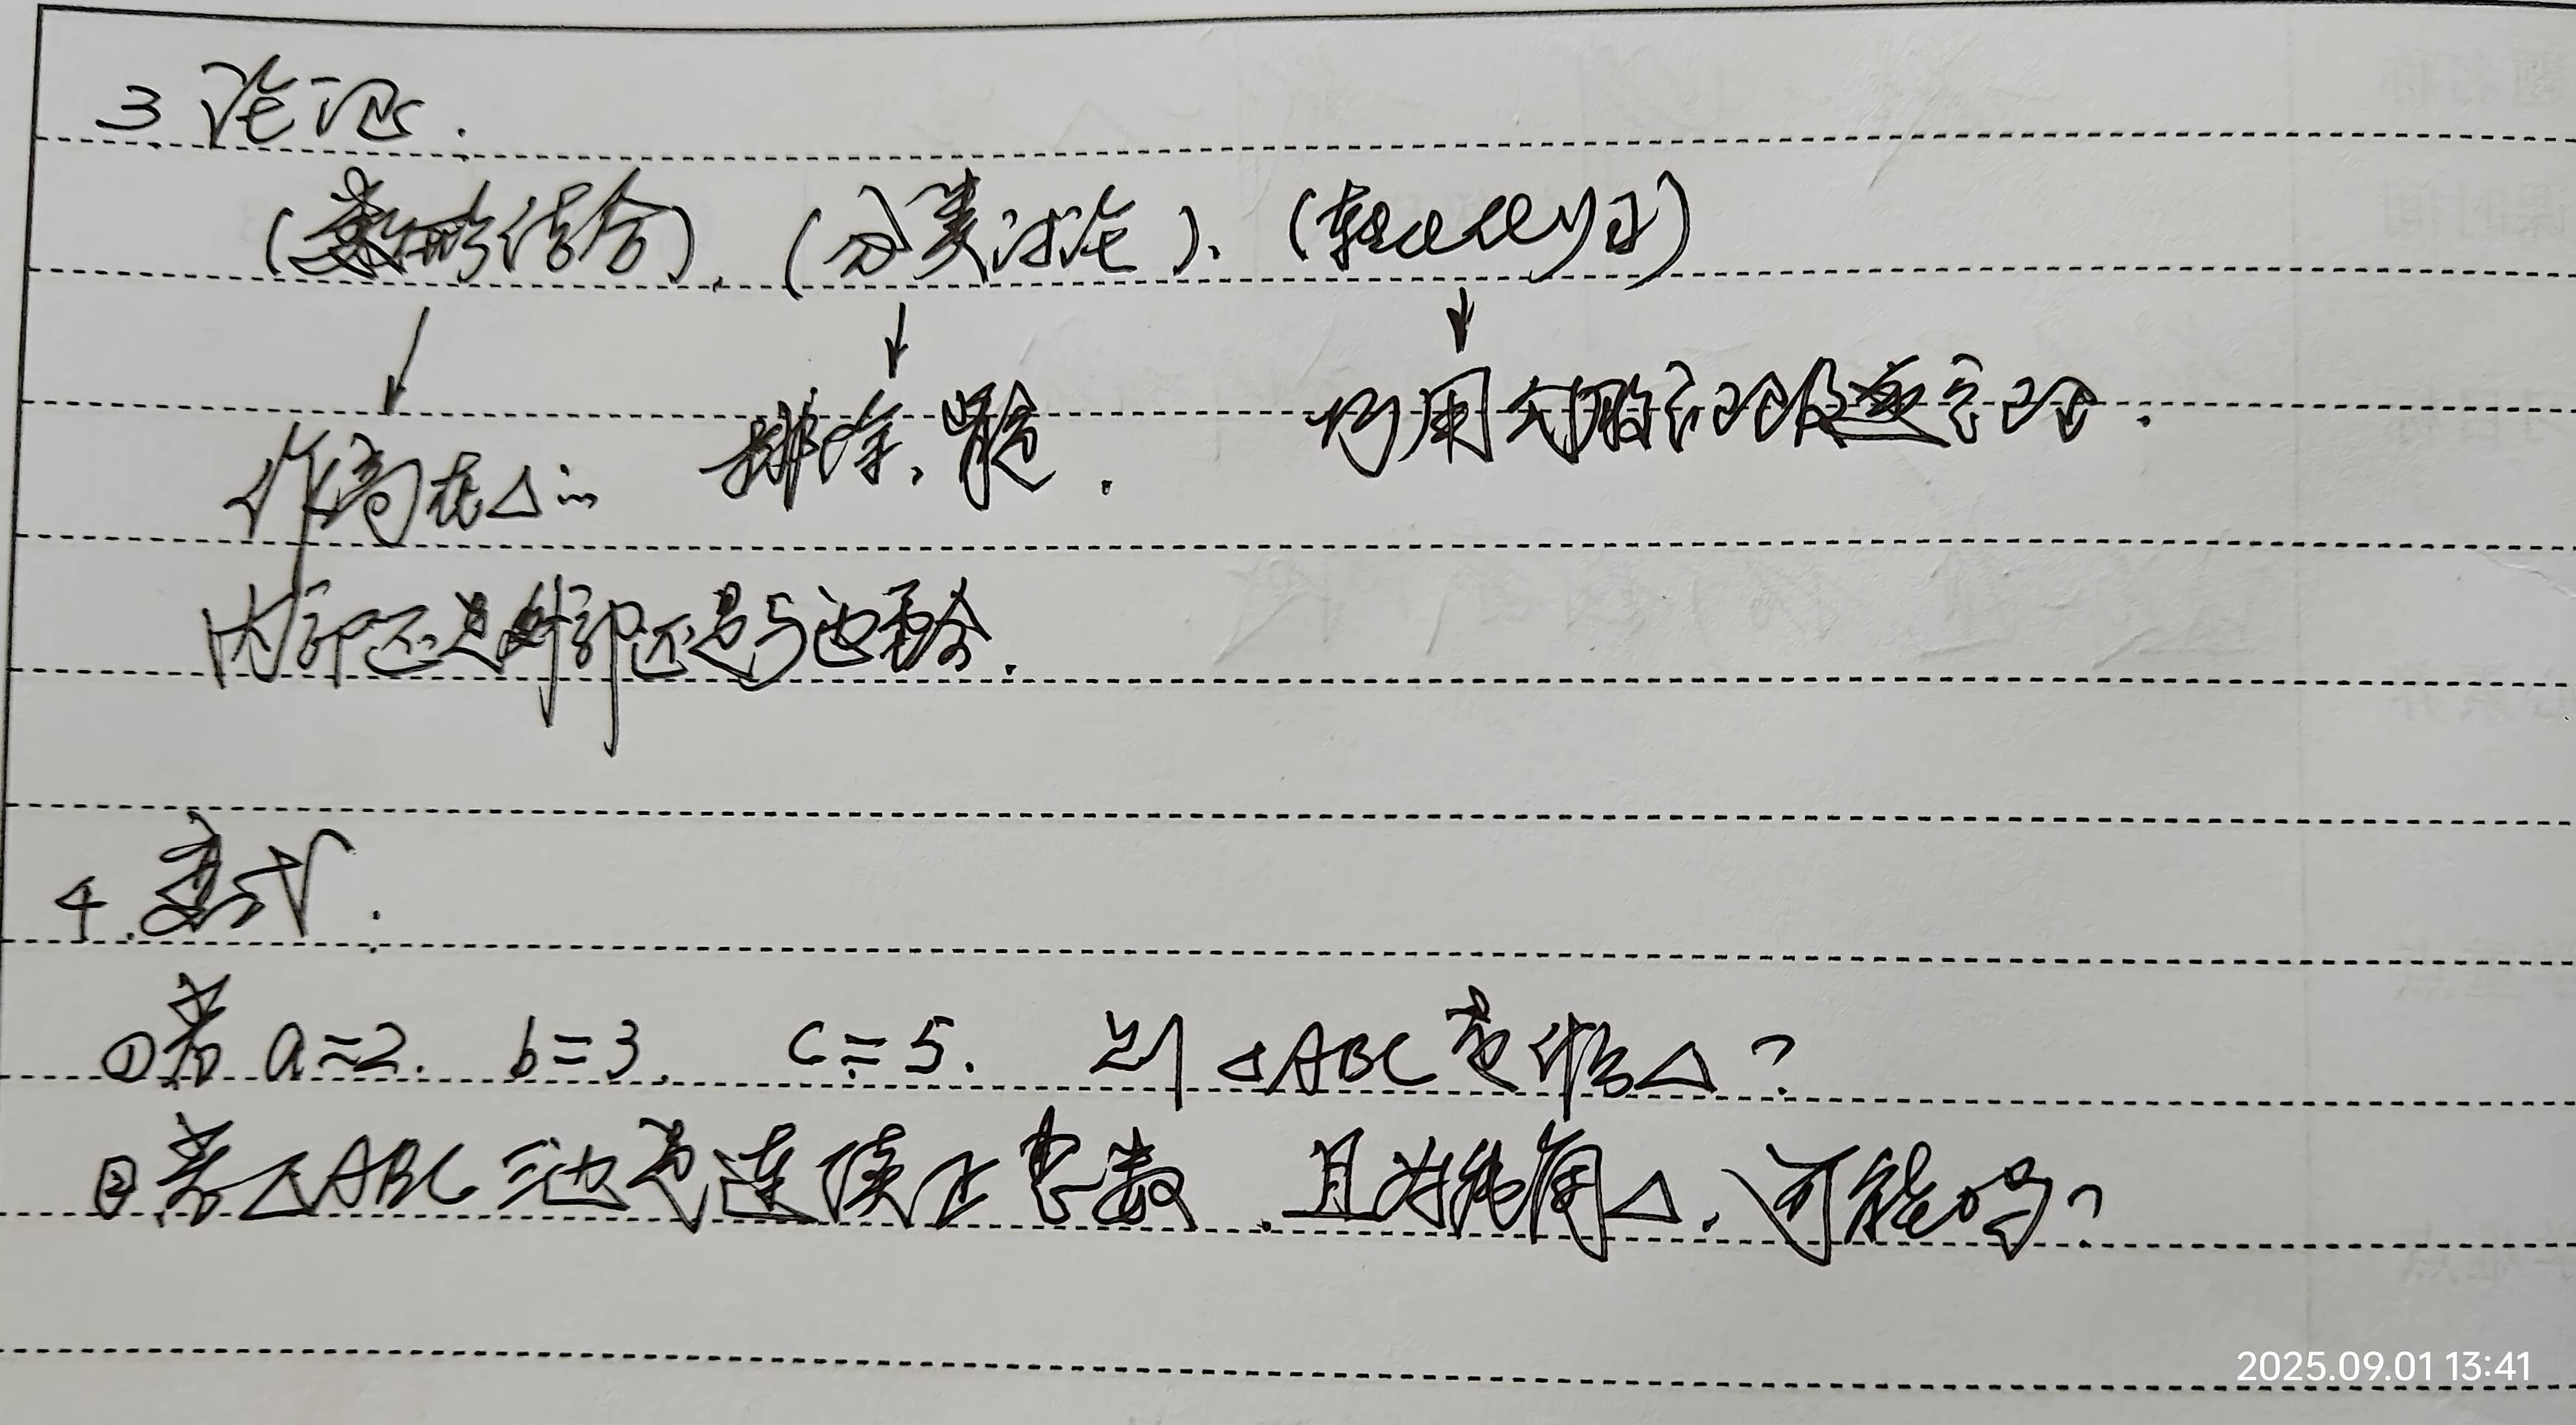 3.论证.
(数形结合)、(分类讨论)、(转化化归)
作高在△的 排除, 巧用勾股定理及逆定理.
内部还是外部还是与边重合.
4.变式.
①若 a=2. b=3. c=5. 则 △ABC是什么△?
②若△ABC三边为连续正整数,且为钝角△,可能吗?
2025.09.01 13:41